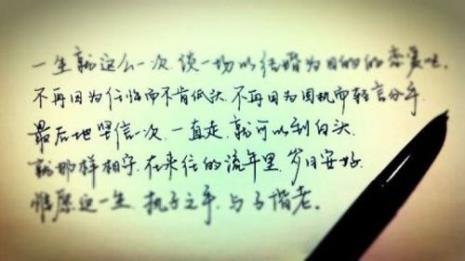 一生就这么一次,谈一场以结婚为目的的恋爱吧。
不再因为任性而不肯低头,不再因为固执而轻言分手。
最后地坚信一次,一直走,就可以到白头。
就那样相守,在来往的流年里,岁月安好。
惟愿这一生,执子之手,与子偕老。